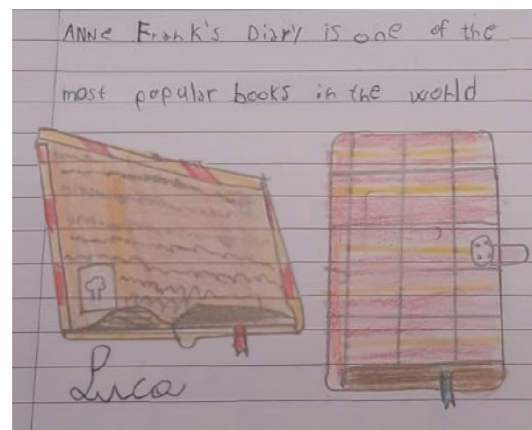 ANNe Frank's Diary is one of the
most popular books in the world
Luca